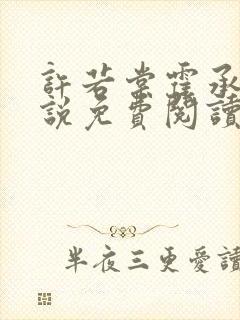 許若棠霍承
說免費閱讀
半夜三更愛讀